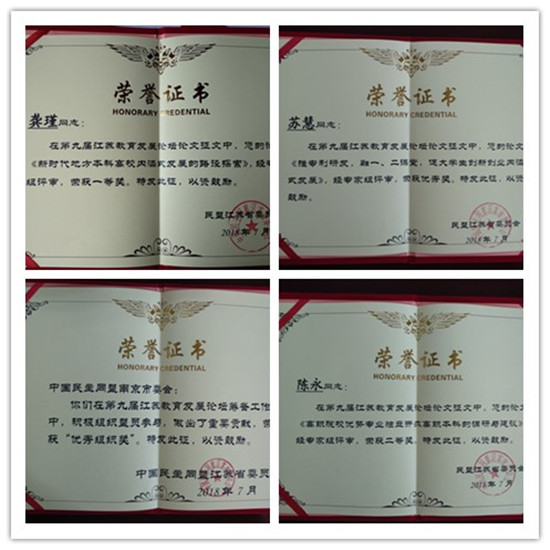 荣誉证书
HONORARY CREDENTIAL
龚瑾同志：
在第九届江苏教育发展论坛论文征文中，您的论文
《新时代地方本科高校内涵式发展的路径探索》，经专
家组评审，荣获一等奖。特发此证，以资鼓励。
2018年7月
荣誉证书
HONORARY CREDENTIAL
苏慧同志：
在第九届江苏教育发展论坛论文征文中，您的论文
发展》，经专家组评审，荣获优秀奖。特发此证，以资
鼓励。
民盟江苏省委员会
2018年7月
荣誉证书
HONORARY CREDENTIAL
中国民主同盟南京市委会：
你们在第九届江苏教育发展论坛筹备工作
中，积极组织盟员参与，做出了重要贡献，荣
获“优秀组织奖”。特发此证，以资鼓励。
中国民主同盟江苏省委员会
2018年7月
荣誉证书
HONORARY CREDENTIAL
陈永同志：
在第九届江苏教育发展论坛论文征文中，您的论文
《高职院校优势专业独立研或高职本科的调研与建议》
经专家组评审，荣获二等奖。特发此证，以资鼓励。
民盟江苏省委员会
2018年7月